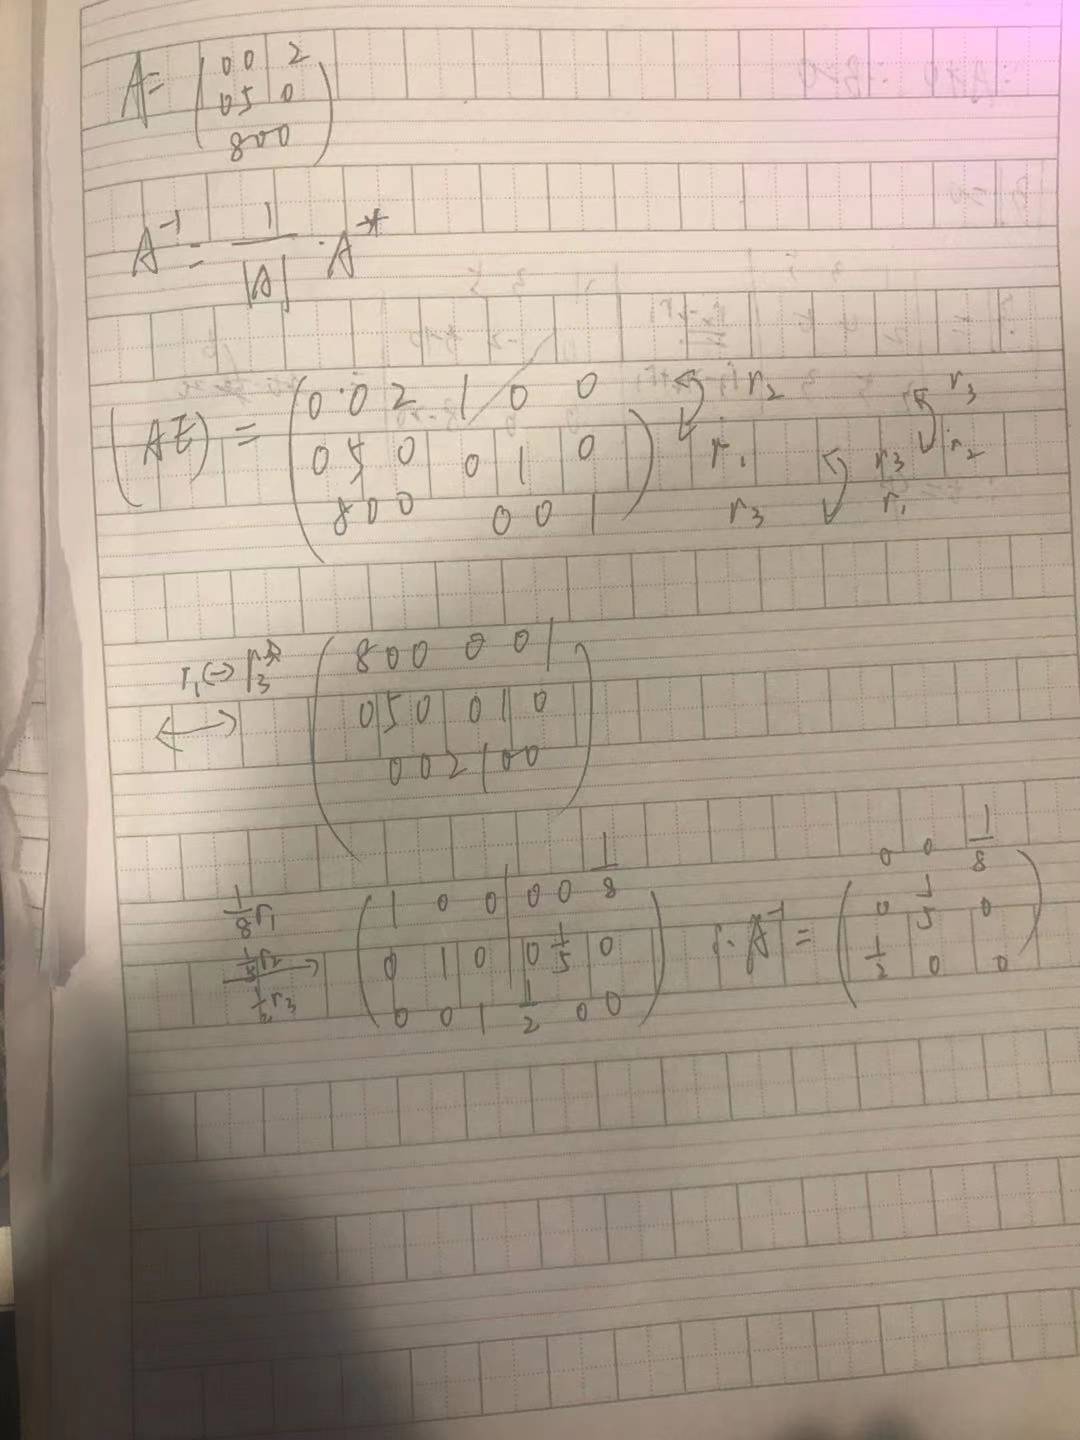 A= ( 0 0 2
0 5 0
8 0 0 )
A⁻¹ = 1/|A| · A*
(A E) = ( 0 0 2 1 0 0
0 5 0 0 1 0
8 0 0 0 0 1 )
r₂ r₃
r₁ r₃ r₂
r₃ r₁
r₁↔r₃
↔
( 8 0 0 0 0 1
0 5 0 0 1 0
0 0 2 1 0 0 )
1/8 r₁
1/5 r₂
→
1/2 r₃
( 1 0 0 | 0 0 1/8
0 1 0 0 1/5 0
0 0 1 1/2 0 0 )
∴ A⁻¹ = ( 0 0 1/8
0 1/5 0
1/2 0 0 )